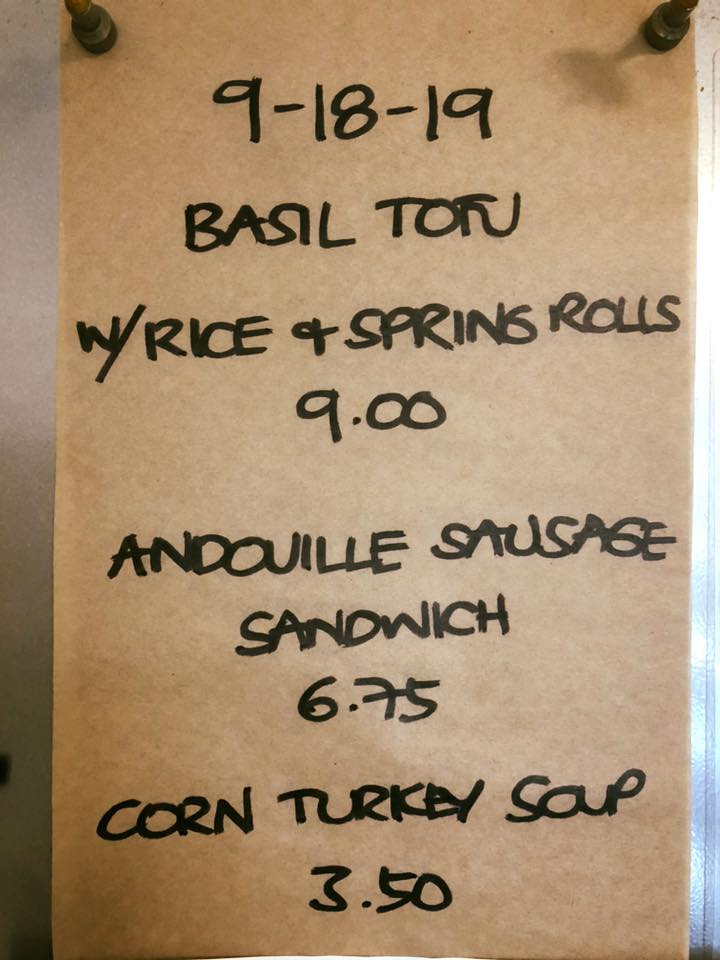 9-18-19
BASIL TOFU
W/RICE & SPRING ROLLS
9.00
ANDOUILLE SAUSAGE
SANDWICH
6.75
CORN TURKEY SOUP
3.50